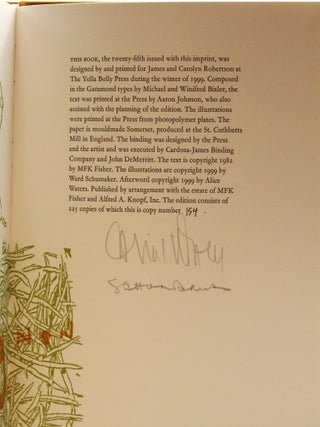 THIS BOOK, the twenty-fifth issued with this imprint, was
designed by and printed for James and Carolyn Robertson at
The Yolla Bolly Press during the winter of 1999. Composed
in the Garamond types by Michael and Winifred Bixler, the
text was printed at the Press by Aaron Johnson, who also
assisted with the planning of the edition. The illustrations
were printed at the Press from photopolymer plates. The
paper is mouldmade Somerset, produced at the St. Cuthberts
Mill in England. The binding was designed by the Press
and the artist and was executed by Cardoza-James Binding
Company and John DeMerritt. The text is copyright 1982
by MFK Fisher. The illustrations are copyright 1999 by
Ward Schumaker. Afterword copyright 1999 by Alice
Waters. Published by arrangement with the estate of MFK
Fisher and Alfred A. Knopf, Inc. The edition consists of
225 copies of which this is copy number 154.